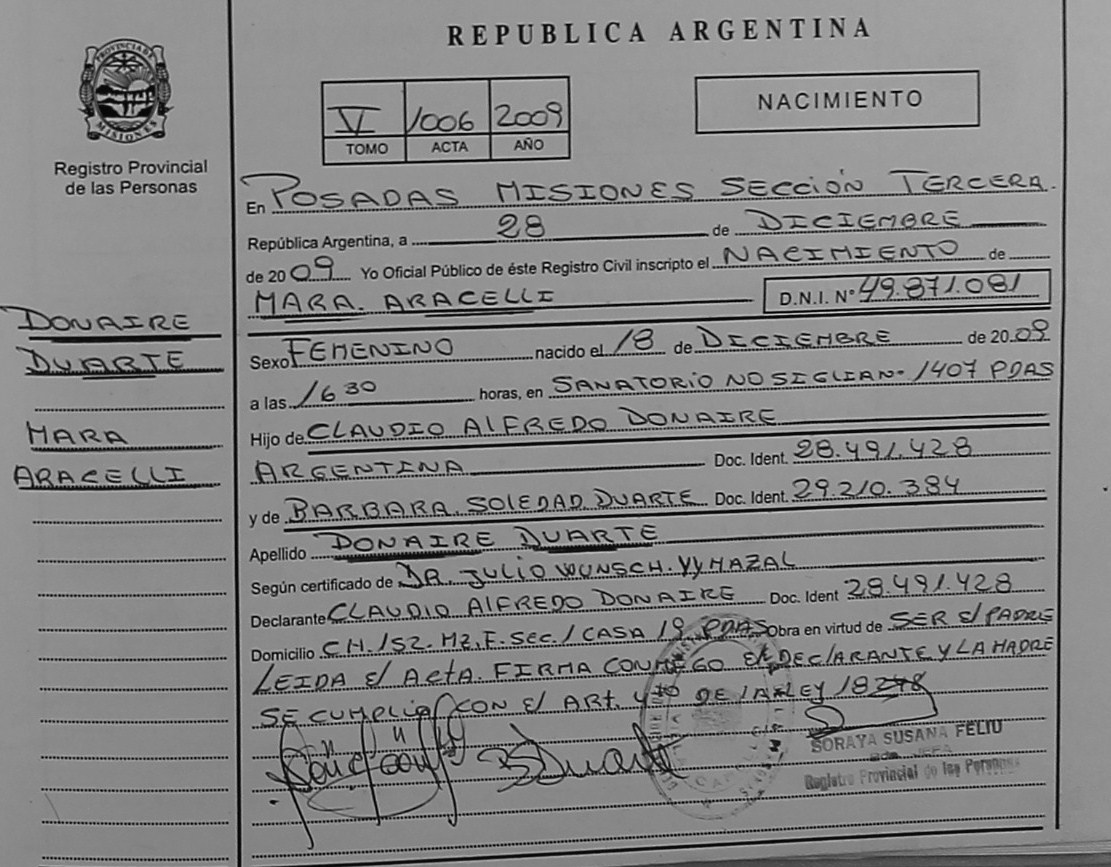 REPUBLICA ARGENTINA
PROVINCIA DE
MISIONES
Registro Provincial
de las Personas
V 1006 2009
TOMO ACTA AÑO
NACIMIENTO
En POSADAS MISIONES SECCIÓN TERCERA.
República Argentina, a 28 de DICIEMBRE
de 2009 Yo Oficial Público de éste Registro Civil inscripto el NACIMIENTO de
MARA. ARACELLI D.N.I. N° 49.871.081
DONAIRE
DUARTE
MARA
ARACELLI
Sexo FEMENINO nacido el 18 de DICIEMBRE de 2009
a las 16 30 horas, en SANATORIO NOSIGLIA N° 1407 PDAS
Hijo de CLAUDIO AlFREDO DONAIRE
ARGENTINA Doc. Ident. 28.491.428
y de BARBARA SOLEDAD DUARTE Doc. Ident. 29.210.384
Apellido DONAIRE DUARTE
Según certificado de DR. JULIO WUNSCH.
Declarante CLAUDIO AlFREDO DONAIRE Doc. Ident 28.491.428
Domicilio CH. 152. Mz. F. Sec. 1 CASA 19 PDAS Obra en virtud de SER El PADRE
LEIDA El ACtA. FIRMA CONMEGO El DEClARANTE Y LA MADRE
SE CUMPLIO CON El ART. 4to DE LA LEY 18248
SORAYA SUSANA FELIU
JEFA
Registro Provincial de las Personas